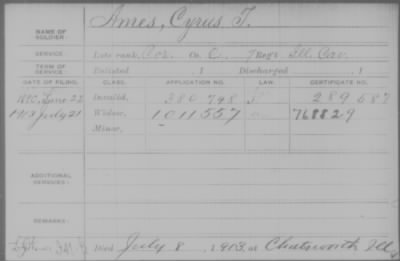 NAME OF SOLDIER: Ames, Cyrus T.
SERVICE: Late rank, Cor. Co. C, 7 Reg't Ill. Cav.
TERM OF SERVICE: Enlisted , 1 Discharged , 1
DATE OF FILING. CLASS. APPLICATION NO. LAW. CERTIFICATE NO.
June 22 Invalid, 380748 289587
July 21 Widow, 1011557 768829
Minor,
ADDITIONAL SERVICES:
REMARKS:
Died July 8, 1903, at Chatsworth Ill